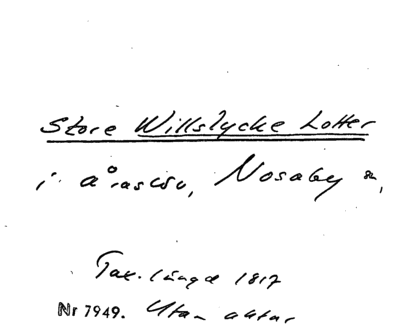 Store Willstycke Lotter
i Åraslöv, Nosaby sn,
Tax. längd 1817
Nr 7949. Utan aktar